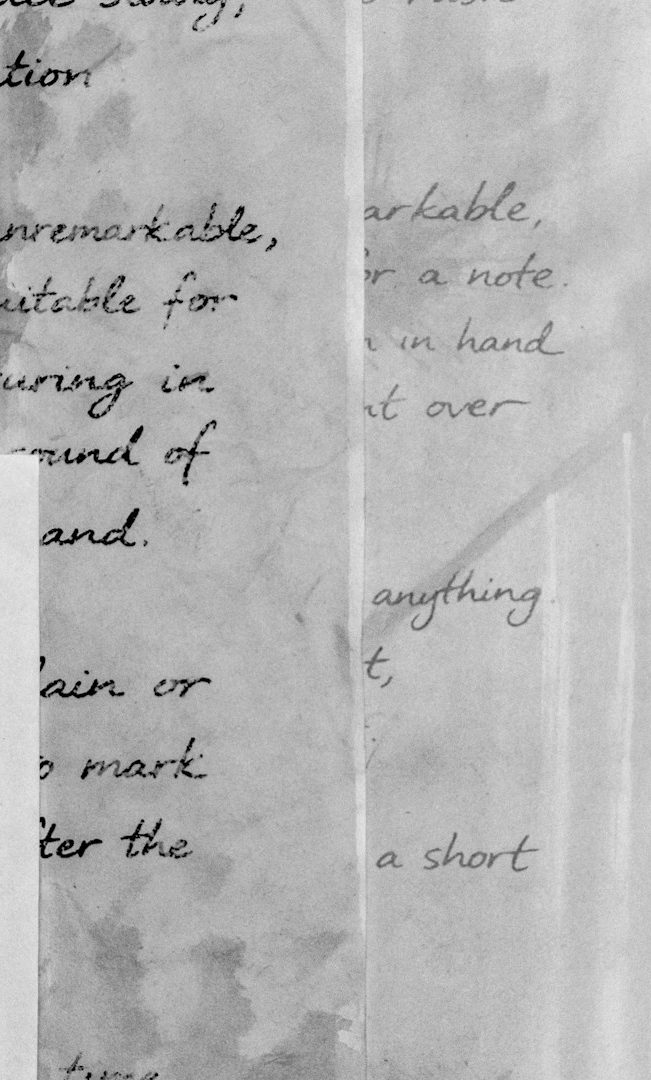 tion
unremarkable,
suitable for
uring in
round of
and.
lain or
o mark
fter the
time
arkable,
or a note.
in hand
nt over
anything.
t,
a short